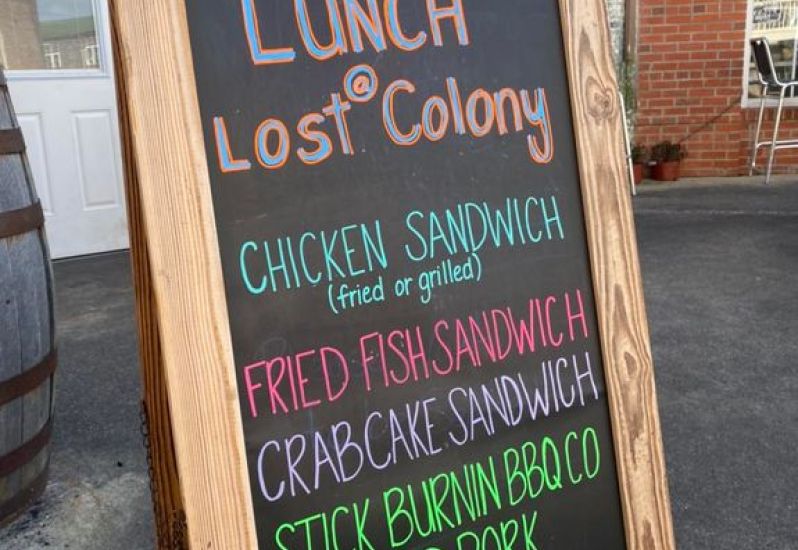 LUNCH
@
Lost Colony
CHICKEN SANDWICH
(fried or grilled)
FRIED FISH SANDWICH
CRABCAKE SANDWICH
STICK BURNIN BBQ CO
PORK